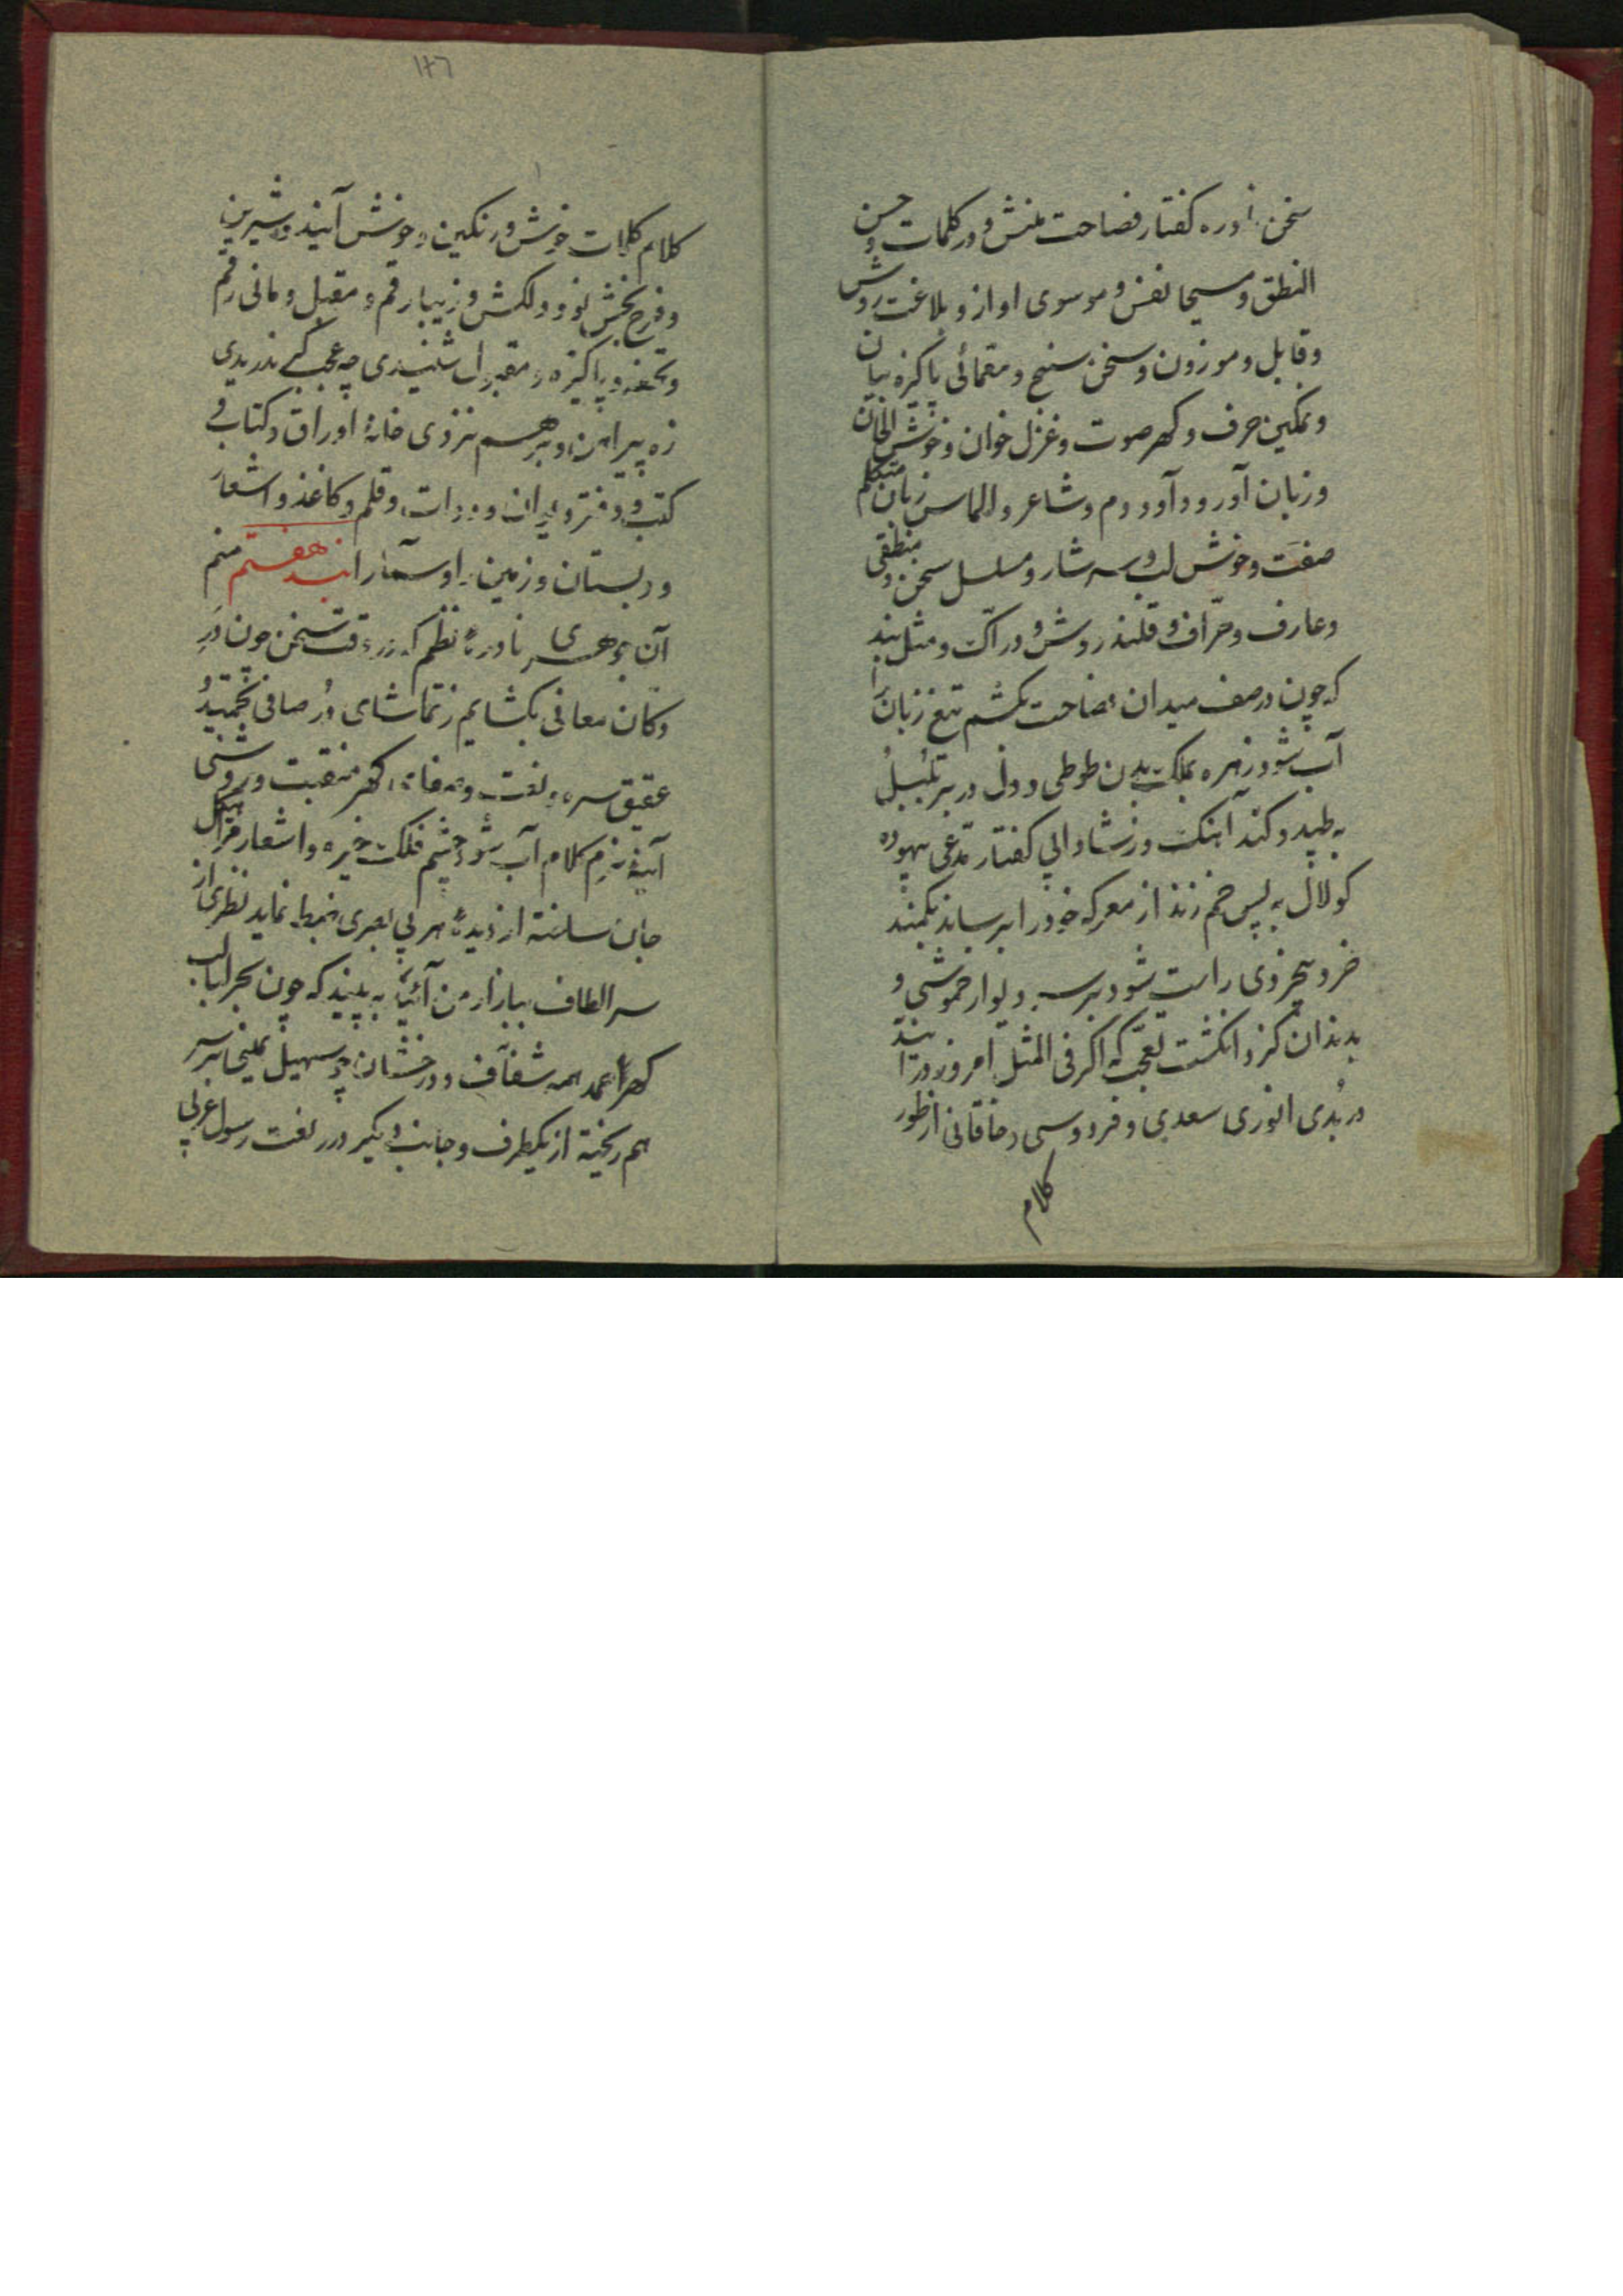 سخن آوره کفتار فصاحت منش و در کلمات و حسن
النطق و مسیحا نفس و موسوی اواز و بلاغت روش
و قابل و موزون و سخن سنج و مقمائی پاکیزه بیان
و نمکین حرف و کهر صوت و غزل خوان و خوش الحان
و زبان آور و دآود دم و شاعر و الماس زبان متکلم
صفت و خوش لب و سرشار و مسلسل سخن و منطقی
و عارف و حرّاف و قلندر روش و درّاک و مثل بند
که چون در صف میدان فصاحت بکشم تیغ زبان را
آب شود زهره بملک بدن طوطی و دل در بر بلبل
به طپد و کند آهنک
کولال به پس خم زند از معرکه خود را برساند بکمند
خرد بیخردی راست شود بر سر دیوار خموشی و
بدندان کزد انکشت تعجب که اکر فی المثل امروز در آیند
در بُدی انوری سعدی و فردوسی و خاقانی از طور
کلام
۱۲۶
کلام کلمات خوش و رنکین و خوش آیند و شیرین
و فرح بخش نو و دلکش و زیبا رقم و مقبل و مانی رقم
و تحفه و پاکیزه و مقبول شنیدی چه عجب کر ندریدی
زه پیراهن و بر هم نزدی خانهٔ اوراق و کتاب و
کتب و دفتر و ایوان و دوات و قلم و کاغذ و اشعار
و دبستان و زمین را و سما را بند هفتم منم
آن جوهری نادرهٔ نظم که در وقت سخن چون در
و کان معانی بکشایم ز تماشای دُر صافی
عقیق سره نعت و کهر منقبت و روشنی
آینهٔ نرم کلام آب شود چشم فلک خیره و اشعار مرا
جان ساخته از دیدهٔ هر بی بصری ضبط نماید نظری از
سر الطاف ببازار من آئید به بینید که چون بحر لبالب
کهر همه شفّاف و درخشان چو سهیل یمنی بر سر
هم ریخته از یکطرف و جانب دیکر درر نعت رسول عربی